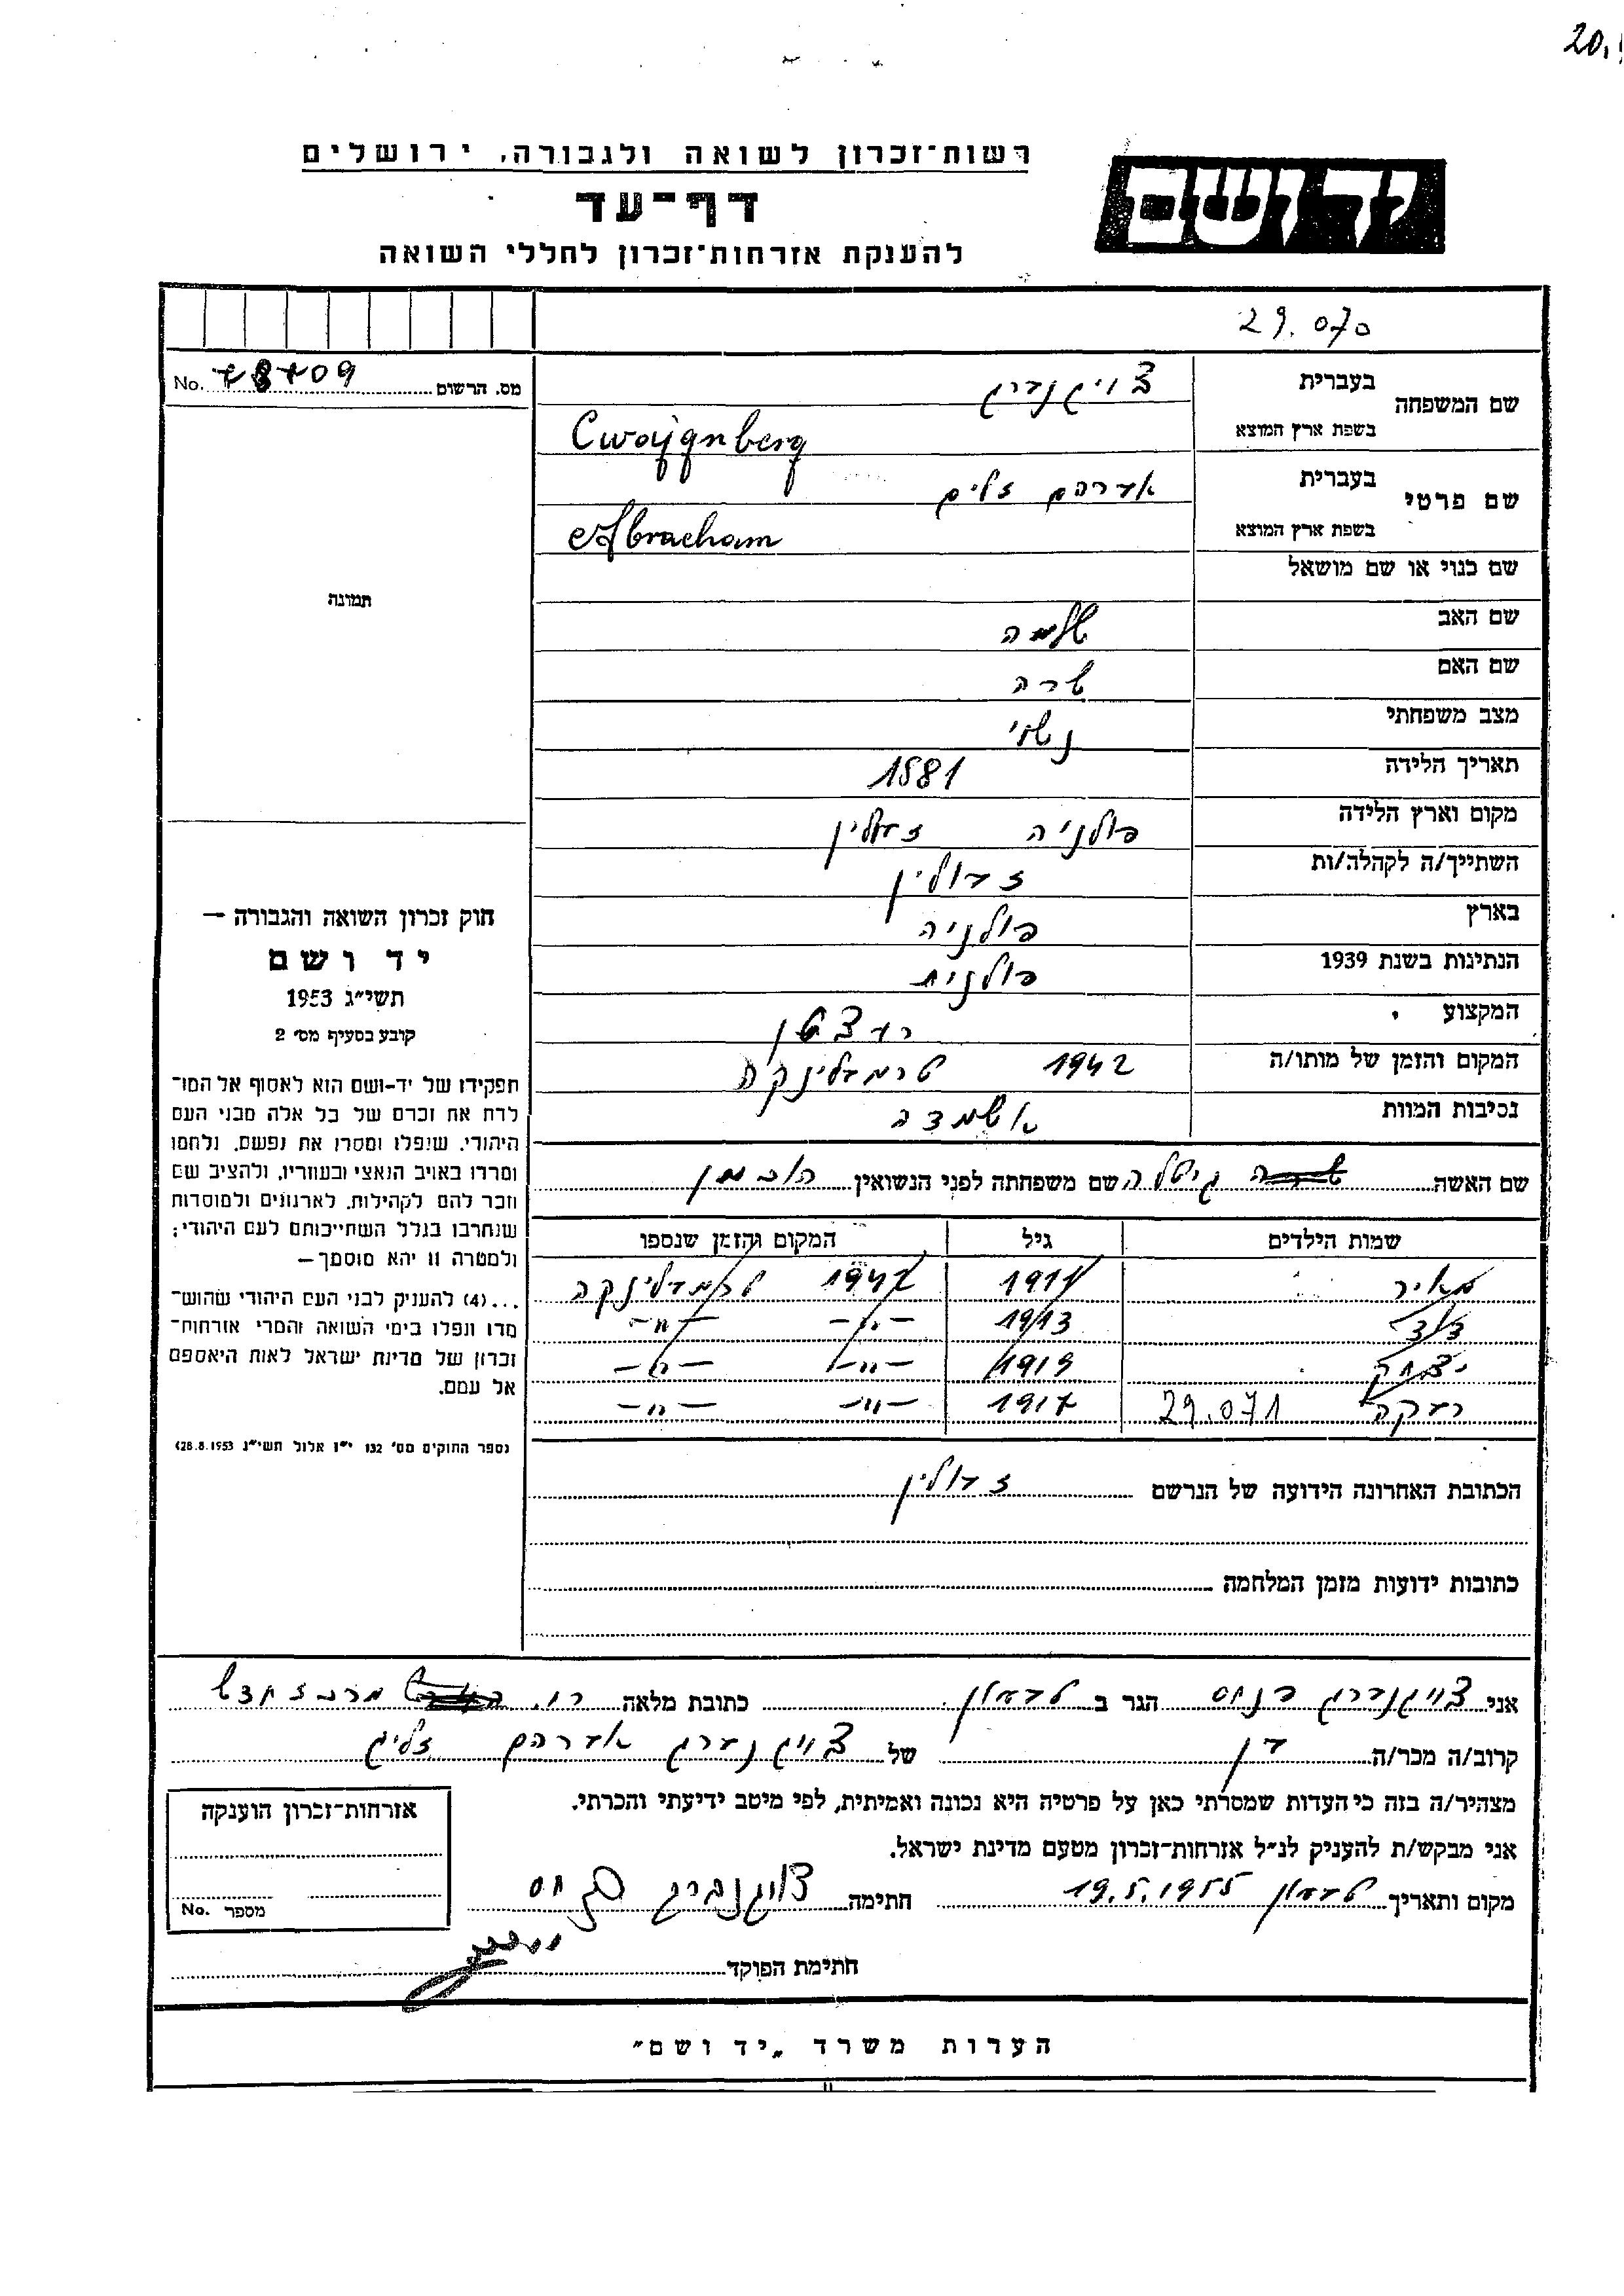 20.
רשות־זכרון לשואה ולגבורה, ירושלים
יד ושם
דף־עד
להענקת אזרחות־זכרון לחללי השואה
29.070
מס. הרשום No. 78709
שם המשפחה בעברית צויגנברג
בשפת ארץ המוצא Cwajgnberg
שם פרטי בעברית אברהם זליג
בשפת ארץ המוצא Abracham
שם כנוי או שם מושאל
תמונה
שם האב שלמה
שם האם שרה
מצב משפחתי נשוי
תאריך הלידה 1881
מקום וארץ הלידה פולניה זוולין
השתייך/ה לקהלה/ות זוולין
בארץ פולניה
הנתינות בשנת 1939 פולנית
המקצוע
המקום והזמן של מותו/ה 1942 טרמבלינקה
נסיבות המוות אושמד
חוק זכרון השואה והגבורה —
יד ושם
תשי״ג 1953
קובע בסעיף מס׳ 2
תפקידו של יד-ושם הוא לאסוף אל המו־
לדת את זכרם של כל אלה מבני העם
היהודי, שנפלו ומסרו את נפשם, נלחמו
ומרדו באויב הנאצי ובעוזריו, ולהציב שם
וזכר להם לקהילות, לארגונים ולמוסדות
שנחרבו בגלל השתייכותם לעם היהודי;
ולמטרה זו יהא מוסמך—
...(4) להעניק לבני העם היהודי שהוש־
מדו ונפלו בימי השואה והמרי אזרחות־
זכרון של מדינת ישראל לאות היאספם
אל עמם.
(ספר החוקים מס׳ 132 י״ז אלול תשי״ג 28.8.1953)
שם האשה גיטלה שם משפחתה לפני הנשואין
שמות הילדים גיל המקום והזמן שנספו
מאיר 1911 1942 טרמבלינקה
1913 —״— —״—
יצחק 1919 —״— —״—
רבקה 29.071 1917 —״— —״—
הכתובת האחרונה הידועה של הנרשם זוולין
כתובות ידועות מזמן המלחמה
אני צויגנברג פנחס הגר ב טבעון כתובת מלאה רח.
קרוב/ה מכר/ה בן של צויגנברג אברהם זליג
מצהיר/ה בזה כי העדות שמסרתי כאן על פרטיה היא נכונה ואמיתית, לפי מיטב ידיעתי והכרתי.
אני מבקש/ת להעניק לנ״ל אזרחות־זכרון מטעם מדינת ישראל.
מקום ותאריך טבעון 19.5.1955 חתימה צויגנברג פנחס
אזרחות־זכרון הוענקה
מספר No.
חתימת הפוקד
הערות משרד „יד ושם״